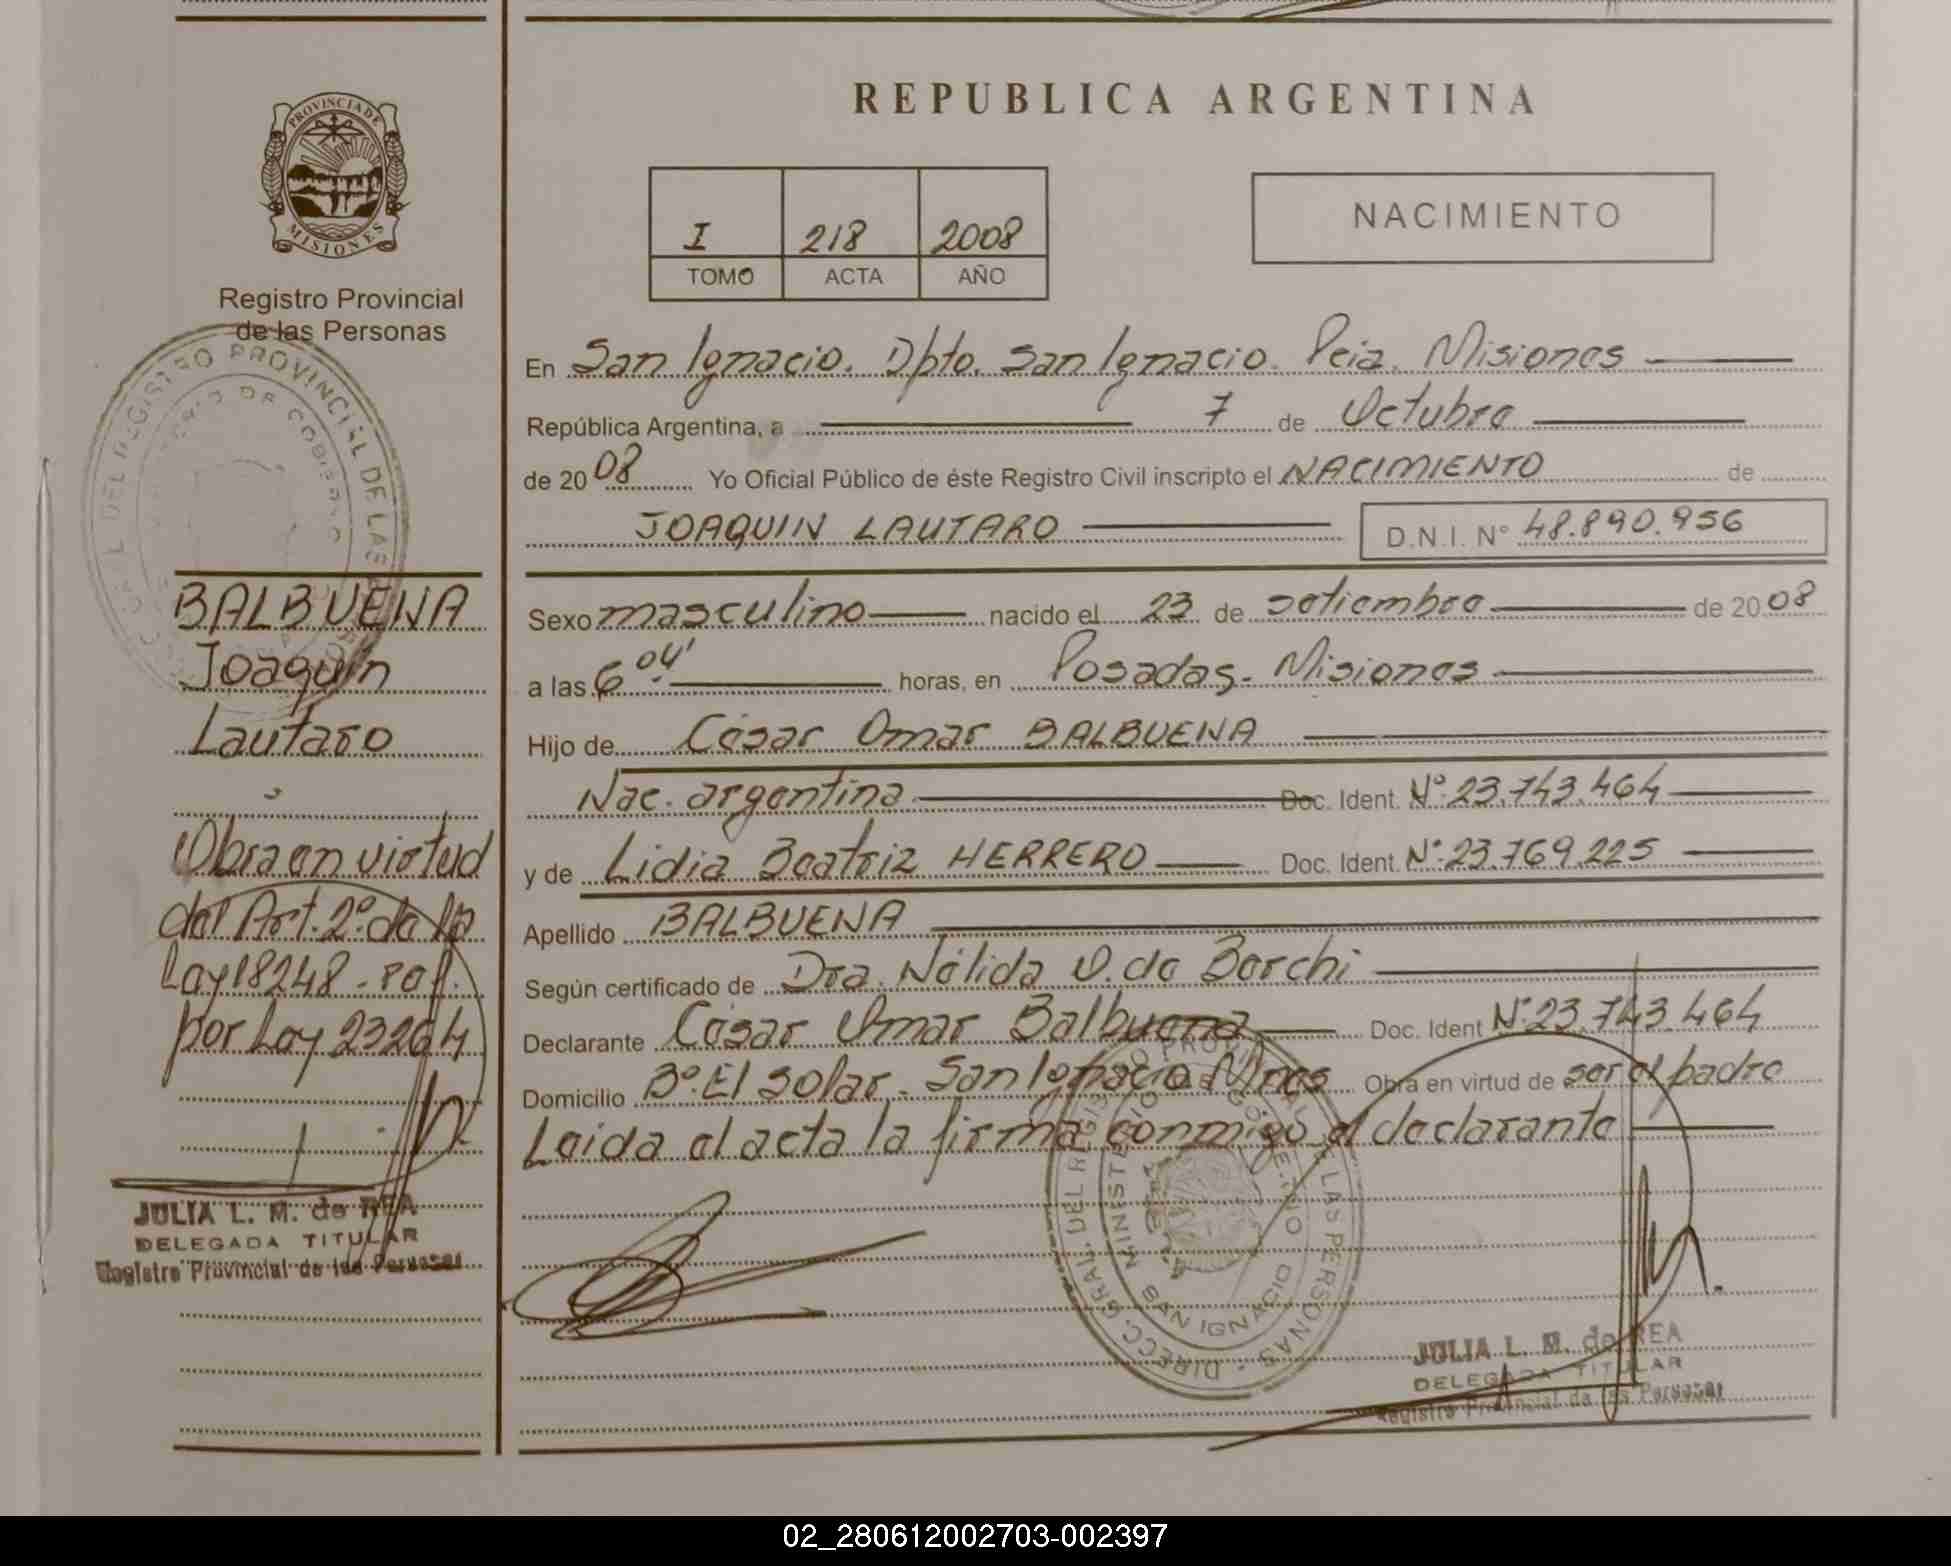 REPUBLICA ARGENTINA
PROVINCIA DE
MISIONES
Registro Provincial
de las Personas
NACIMIENTO
I 218 2008
TOMO ACTA AÑO
En San Ignacio. Dpto. San Ignacio. Pcia. Misiones
República Argentina, a 7 de Octubre
de 2008 Yo Oficial Público de éste Registro Civil inscripto el NACIMIENTO de
JOAQUIN LAUTARO D.N.I. Nº 48.890.956
Sexo masculino nacido el 23 de setiembre de 2008
a las 6º04' horas, en Posadas. Misiones
Hijo de César Omar BALBUENA
Nac. argentina Doc. Ident. Nº 23.743.464
y de Lidia Beatriz HERRERO Doc. Ident. Nº 23.769.225
Apellido BALBUENA
Según certificado de Dra. Nélida O. de Borchi
Declarante César Omar Balbuena Doc. Ident Nº 23.743.464
Domicilio Bº. El Solar. San Ignacio Mnes Obra en virtud de ser el padre
Leida el acta la firma conmigo el declarante
BALBUENA
Joaquín
Lautaro
Obra en virtud
del Art. 2º. de la
Ley 18248. ref.
por Ley 23264
JULIA L. M. de REA
DELEGADA TITULAR
Registro Provincial de las Personas
DIRECC. GRAL. DEL REGISTRO PROVINCIAL DE LAS PERSONAS
MINISTERIO DE GOBIERNO
SAN IGNACIO
JULIA L. M. de REA
DELEGADA TITULAR
Registro Provincial de las Personas
02_280612002703-002397